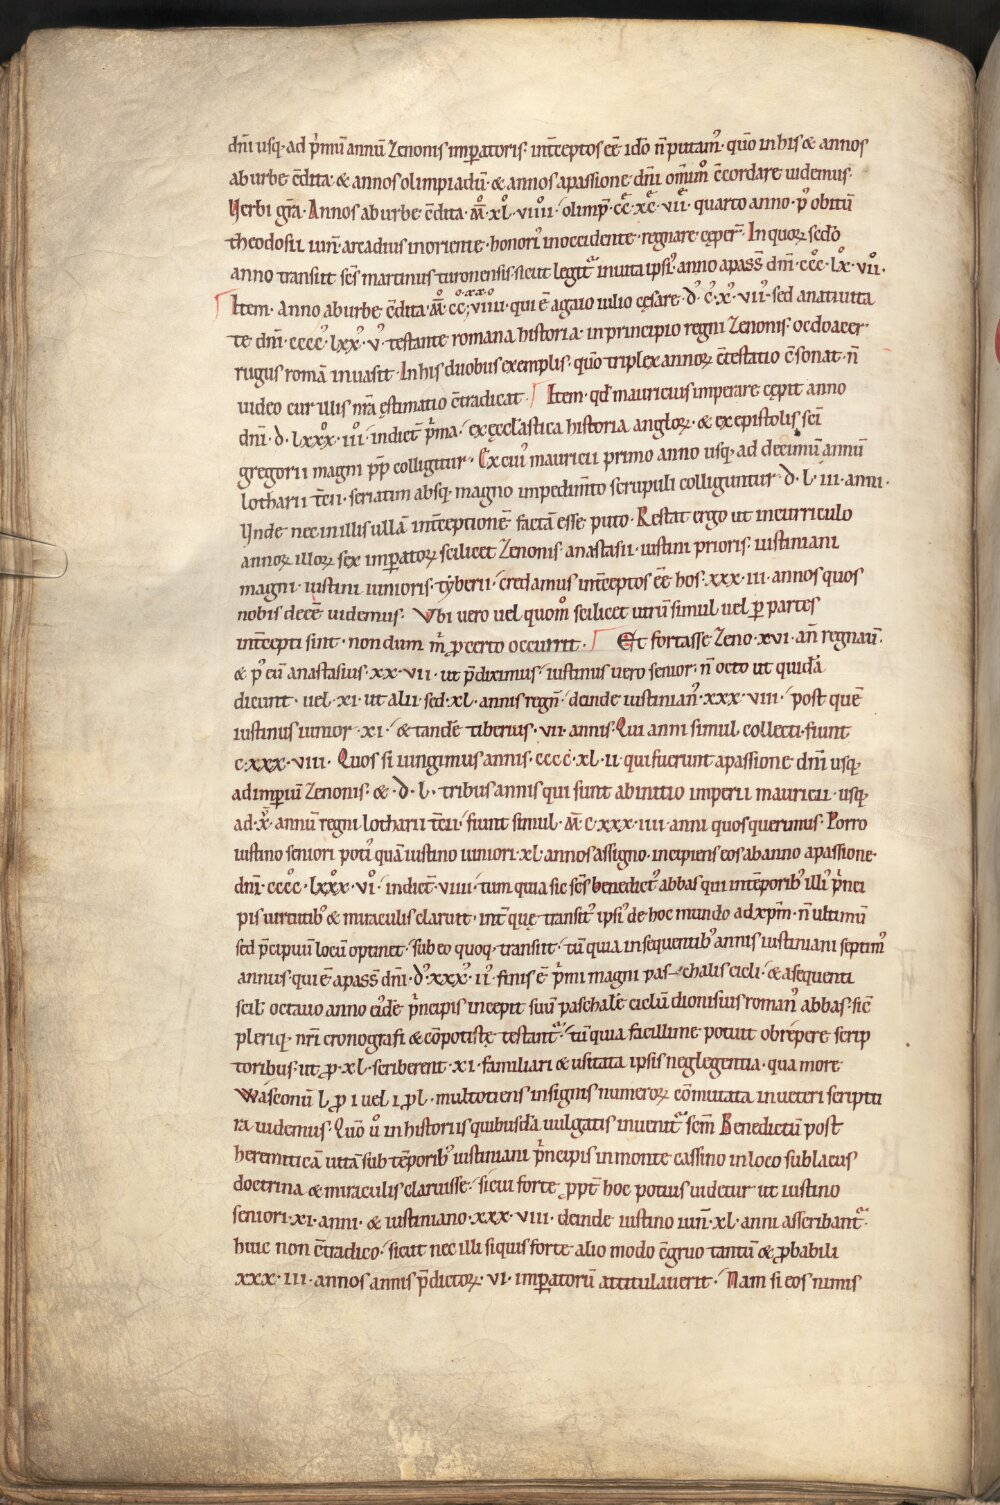 dn̄i usq; ad p̄mū annū Zenonis imꝑatoris· int̄ceptos eē idō n̄ putam᾽· quō in his & annos
ab urbe c̄dita· & annos olimpiadū· & annos a passione dn̄i om̄im̊ c̄cordare uidemus·
Verbi gr̄a· Annos ab urbe c̄dita· m̊· xl̊· viiii̊· olimp̄· cc̊· xc̊· vii̊· quarto anno· p᾽ obitū
theodosii iun̄· arcadius in oriente· honori᾽ in occidente· regnare cęper̄· In quoꝝ sc̄do
anno transiit sc̄s martinus turonensis· sicut legit᾽ in uita ipsi᾽· anno a pass̄ dn̄i· ccc̊· lx̊· vii̊·
Item· Anno ab urbe c̄dita· m̊· cc̊· xxx̊· viiii̊· qui ē a gaio iulio cęsare· d᾽· c᾽· x᾽· vii᾽· sed a natiuita
te dn̄i· cccc᾽· lxx᾽· v᾽· testante romana historia· in principio regni Zenonis· odoacer·
rugus romā inuasit· In his duobus exemplis· quō triplex annoꝝ c̄testatio c̄sonat· n̄
uideo cur illis nr̄a ęstimatio c̄tradicat· Item· qd̄ mauricius imperare cępit anno
dn̄i· d· lxxx̊· iii̊· indict̄ p̄ma· ex ęccl̄astica historia angloꝝ· & ex epistolis sc̄i
gregorii magni pp̄ colligitur· Ex cui᾽ mauricii primo anno usq; ad decimū annū
lotharii t̄cii· seriatim absq; magno impedim̄to scrupuli colliguntur· d· l· iii· anni·
Vnde nec in illis ullā int̄ceptionē factā esse puto· Restat ergo ut in curriculo
annoꝝ illoꝝ sex imꝑatoꝝ scilicet Zenonis· anastasii· iustini prioris· iustiniani
magni· iustini iunioris· tyberii· credamus int̄ceptos eē hos· xxx· iii· annos quos
nobis deeē uidemus· Vbi uero uel quom̊ scilicet utrū simul uel ꝑ partes
int̄cepti sint· non dum m̄ ꝓ certo occurrit· Et fortasse Zeno· xvi· an̄ regnaū·
& p᾽ eū anastasius· xx· vii· ut p̄diximus· iustinus uero senior· n̄ octo ut quidā
dicunt· uel· xi· ut alii· sed· xl· annis regn̄· deinde iustinian᾽· xxx· viii· post quē
iustinus iunior· xi· & tandē tiberius· vii· annis· Qui anni simul collecti fiunt
c· xxx· viii· Quos si iungimus annis· cccc· xl· ii· qui fuerunt a passione dn̄i usq;
ad imꝑiū Zenonis· & · d· l· tribus annis qui sunt ab initio imperii mauricii· usq;
ad· x᾽· annū regni lotharii t̄cii· fiunt simul· m̄· c· xxx· iiii· anni quos querimus· Porro
iustino seniori poti᾽ quā iustino iuniori· xl· annos assigno· incipiens eos ab anno a passione·
dn̄i· cccc̊· lxxx̊· vi̊· indict̄· viiii· tum quia sic sc̄s benedict᾽ abbas qui in tēporib᾽ illi᾽ p̄nci
pis uirtutib᾽ & miraculis claruit· int̄ quę transit᾽ ipsi᾽ de hoc mundo ad xp̄m· n̄ ultimū
sed p̄cipuū locū optinet· sub eo quoq; transiit· tū quia in sequentib᾽ annis iustiniani septim᾽
annus· qui ē a pass̄ dn̄i· d᾽· xxx᾽· ii᾽· finis ē p̄mi magni paschalis cicli· & a sequenti
scil· octauo anno ei᾽dē p̄ncipis incepit suū paschalē ciclū dionisius roman᾽ abbas· sic̄
pleriq; nr̄i cronografi & cōpotistę testant᾽· tū quia facillime potuit obrepere scrip
toribus· ut ꝓ· xl· scriberent· xi· familiari & usitata ipsis neglegentia· qua more
wasconū l ꝓ i uel i ꝓ l· multotiens insignis numeroꝝ cōmutata in ueteri scriptu
ra uidemus· Quō ů in historiis quibusdā uulgatis inuenit᾽ sc̄m Benedictū post
heremiticā uitā sub tēporib᾽ iustiniani p̄ncipis in monte cassino in loco sublacus
doctrina & miraculis claruisse· si cui forte ꝓpt̄ hoc potius uidetur ut iustino
seniori· xi· anni· & iustiniano· xxx· viii· deinde iustino iun̄· xl· anni asscribant᾽·
huic non c̄tradico· sicut nec illi siquis forte alio modo c̄gruo tantū & ꝓbabili
xxx· iii· annos annis p̄dictoꝝ· vi· imꝑatorū attitulauerit· Nam si eos nimis